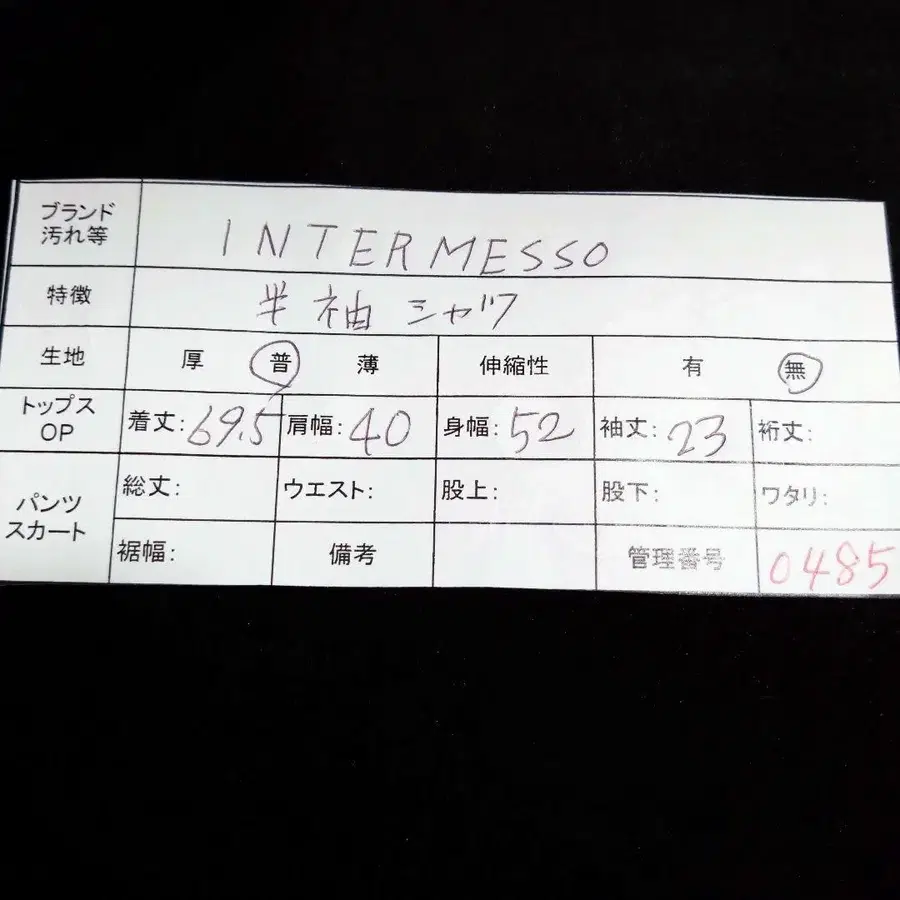 ブランド
汚れ等
INTERMESSO
特徴 半袖シャツ
生地 厚 普 薄 伸縮性 有 無
トップス
OP
着丈:69.5 肩幅:40 身幅:52 袖丈:23 裄丈:
パンツ
スカート
総丈: ウエスト: 股上: 股下: ワタリ:
裾幅: 備考 管理番号 0485